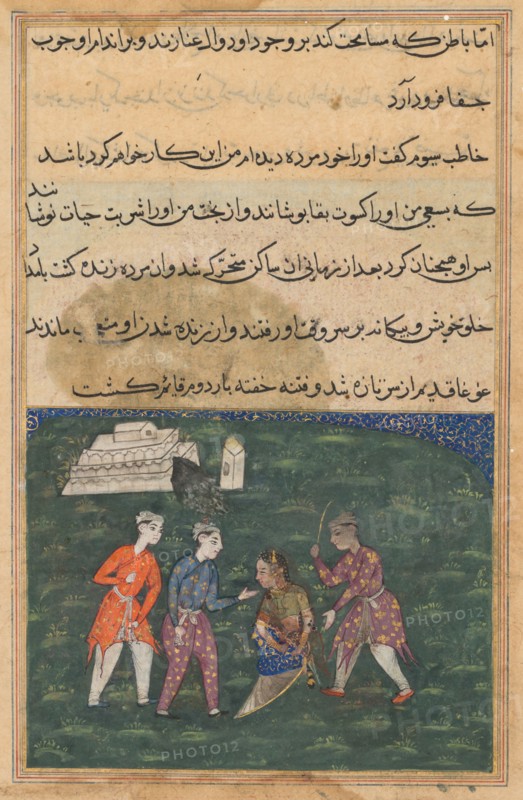 اما باطن که مسامحت کند بر وجود او دوال عنا زند و بر اندام او چوب
جفا فرود آرد
خاطب سیوم گفت او را خود مرده دیده ام من این کار خواهم کرد باشد
که بسعی من او را کسوت بقا پوشانند و از بخت من او را شربت حیات نوشانند
پس او همچنان کرد بعد از زمانی آن ساکن متحرک شد و آن مرده زنده گشت بامداد
خلق خویش و بیگانه بر سر وقت او رفتند و از زنده شدن او متعجب ماندند
غوغا قدیم از سر تازه شد و فتنه خفته بار دوم قایم گشت
PHOTO12
PHOTO12
PHOTO12
PHOTO12